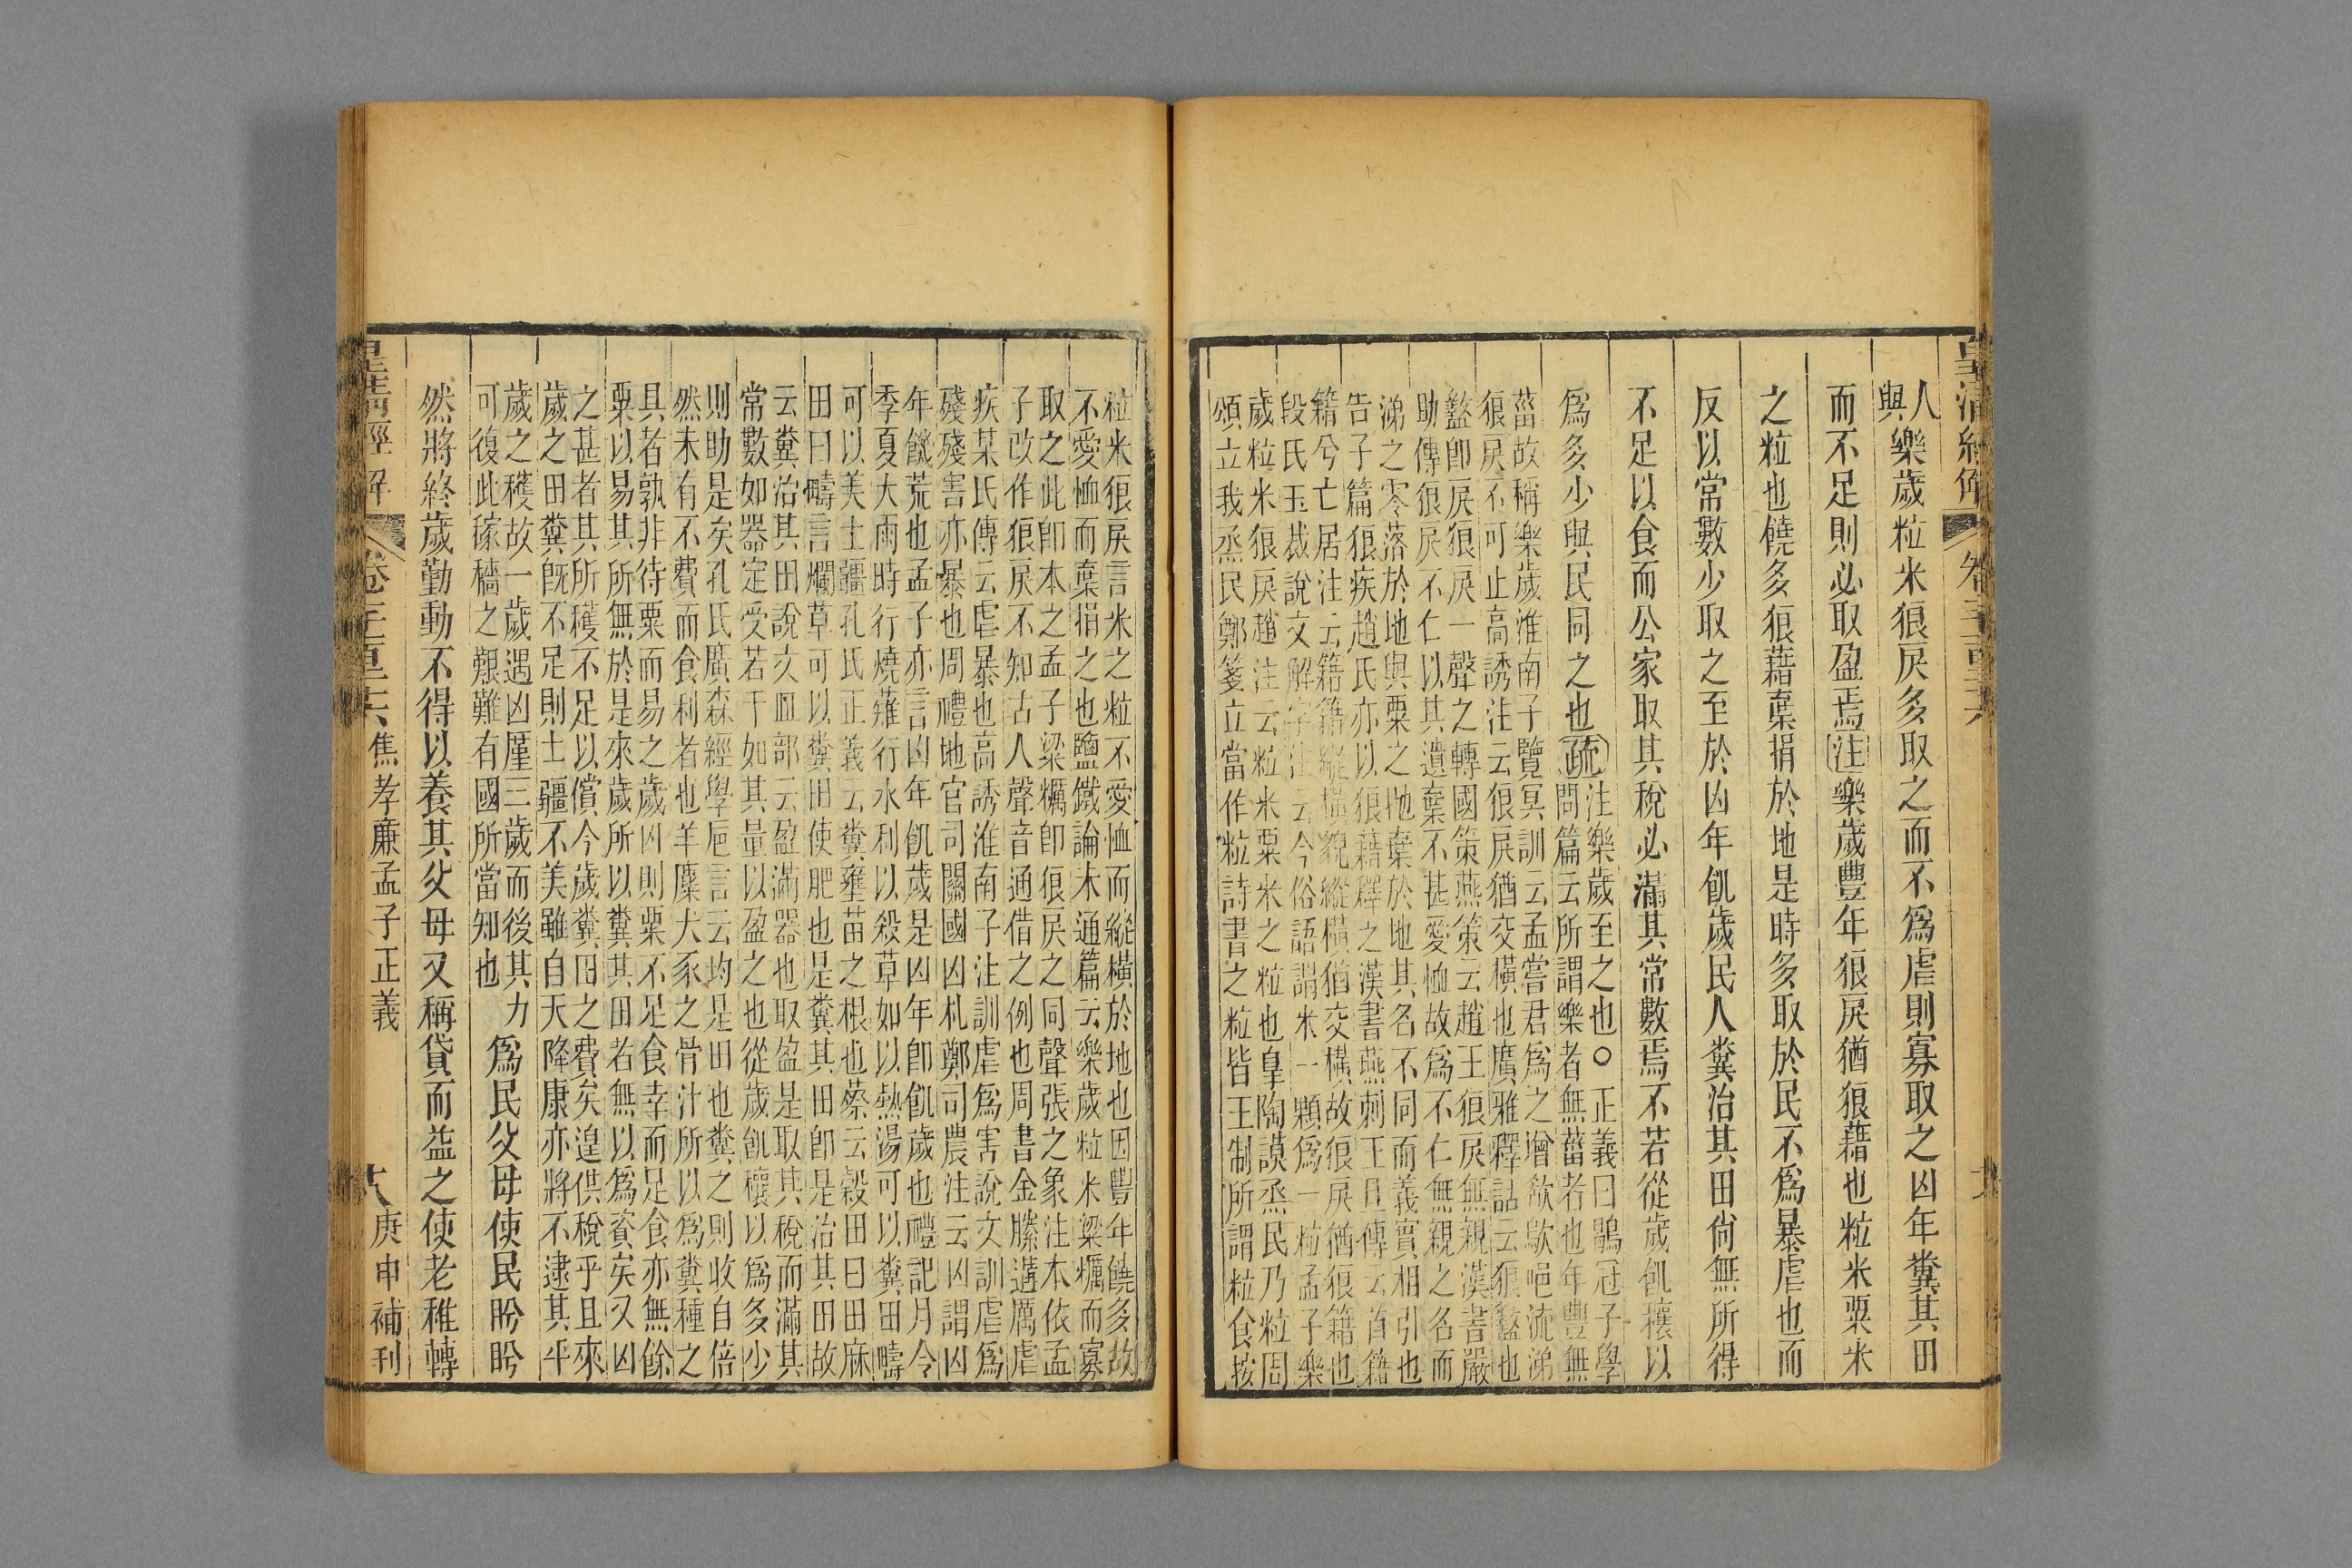 皇清經解
卷
人
與樂歲粒米狼戾多取之而不爲虐則寡取之凶年糞其田
而不足則必取盈焉注樂歲豐年狼戾猶狼藉也粒米粟米
之粒也饒多狼藉棄捐於地是時多取於民不爲暴虐也而
反以常數少取之至於凶年飢歲民人糞治其田尚無所得
不足以食而公家取其稅必滿其常數焉不若從歲飢穰以
爲多少與民同之也疏
注樂歲至之也○正義曰鶡冠子學
問篇云所謂樂者無菑者也年豐無
菑故稱樂歲淮南子覽冥訓云孟嘗君爲之增欷歍唈流涕
狼戾不可止高誘注云狼戾猶交橫也廣雅釋詁云狼盭也
盭卽戾狼戾一聲之轉國策燕策云趙王狼戾無親漢書嚴
助傳狼戾不仁以其遺棄不甚愛恤故爲不仁無親之名而
涕之零落於地與粟之地棄於地其名不同而義實相引也
告子篇狼疾趙氏亦以狼藉釋之漢書燕刺王旦傳云首籍
籍兮亡居注云籍籍縱橫貌縱橫猶交橫故狼戾猶狼籍也
段氏玉裁說文解字注云今俗語謂米一顆爲一粒孟子樂
歲粒米狼戾趙注云粒米粟米之粒也臯陶謨烝民乃粒周
頌立我烝民鄭箋立當作粒詩書之粒皆王制所謂粒食按
粒米狼戾言米之粒不愛恤而縱橫於地也因豐年饒多故
不愛恤而棄捐之也鹽鐵論未通篇云樂歲粒米梁糲而寡
取之此卽本之孟子梁糲卽狼戾之同聲張之象注本依孟
子改作狼戾不知古人聲音通借之例也周書金縢遘厲虐
疾某氏傳云虐暴也高誘淮南子注訓虐爲害說文訓虐爲
殘殘害亦暴也周禮地官司關國凶札鄭司農注云凶謂凶
年饑荒也孟子亦言凶年飢歲是凶年卽飢歲也禮記月令
季夏大雨時行燒薙行水利以殺草如以熱湯可以糞田疇
可以美土疆孔氏正義云糞壅苗之根也蔡云穀田曰田麻
田曰疇言爛草可以糞田使肥也是糞其田卽是治其田故
云糞治其田說文皿部云盈滿器也取盈是取其稅而滿其
常數如器定受若干如其量以盈之也從歲飢穰以爲多少
則助是矣孔氏廣森經學巵言云均是田也糞之則收自倍
然未有不費而食利者也羊麋犬豕之骨汁所以爲糞種之
具者孰非待粟而易之歲凶則粟不足食幸而足食亦無餘
粟以易其所無於是來歲所以糞其田若無以爲資矣又凶
之甚者其所穫不足以償今歲糞田之費矣遑供稅乎且來
歲之田糞旣不足則土疆不美雖自天降康亦將不逮其平
歲之穫故一歲遇凶厪三歲而後其力
可復此稼穡之艱難有國所當知也
爲民父母使民盻盻
然將終歲勤動不得以養其父母又稱貸而益之使老稚轉
皇清經解
卷
焦孝廉孟子正義
庚申補刊